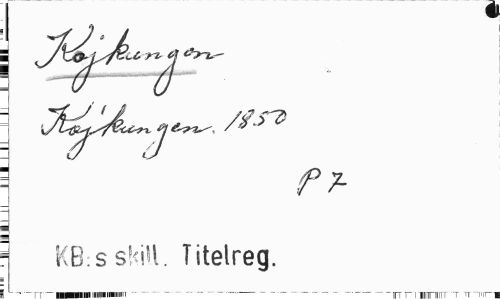 Kojkungen
Kojkungen. 1850
P 7
KB:s skill. Titelreg.